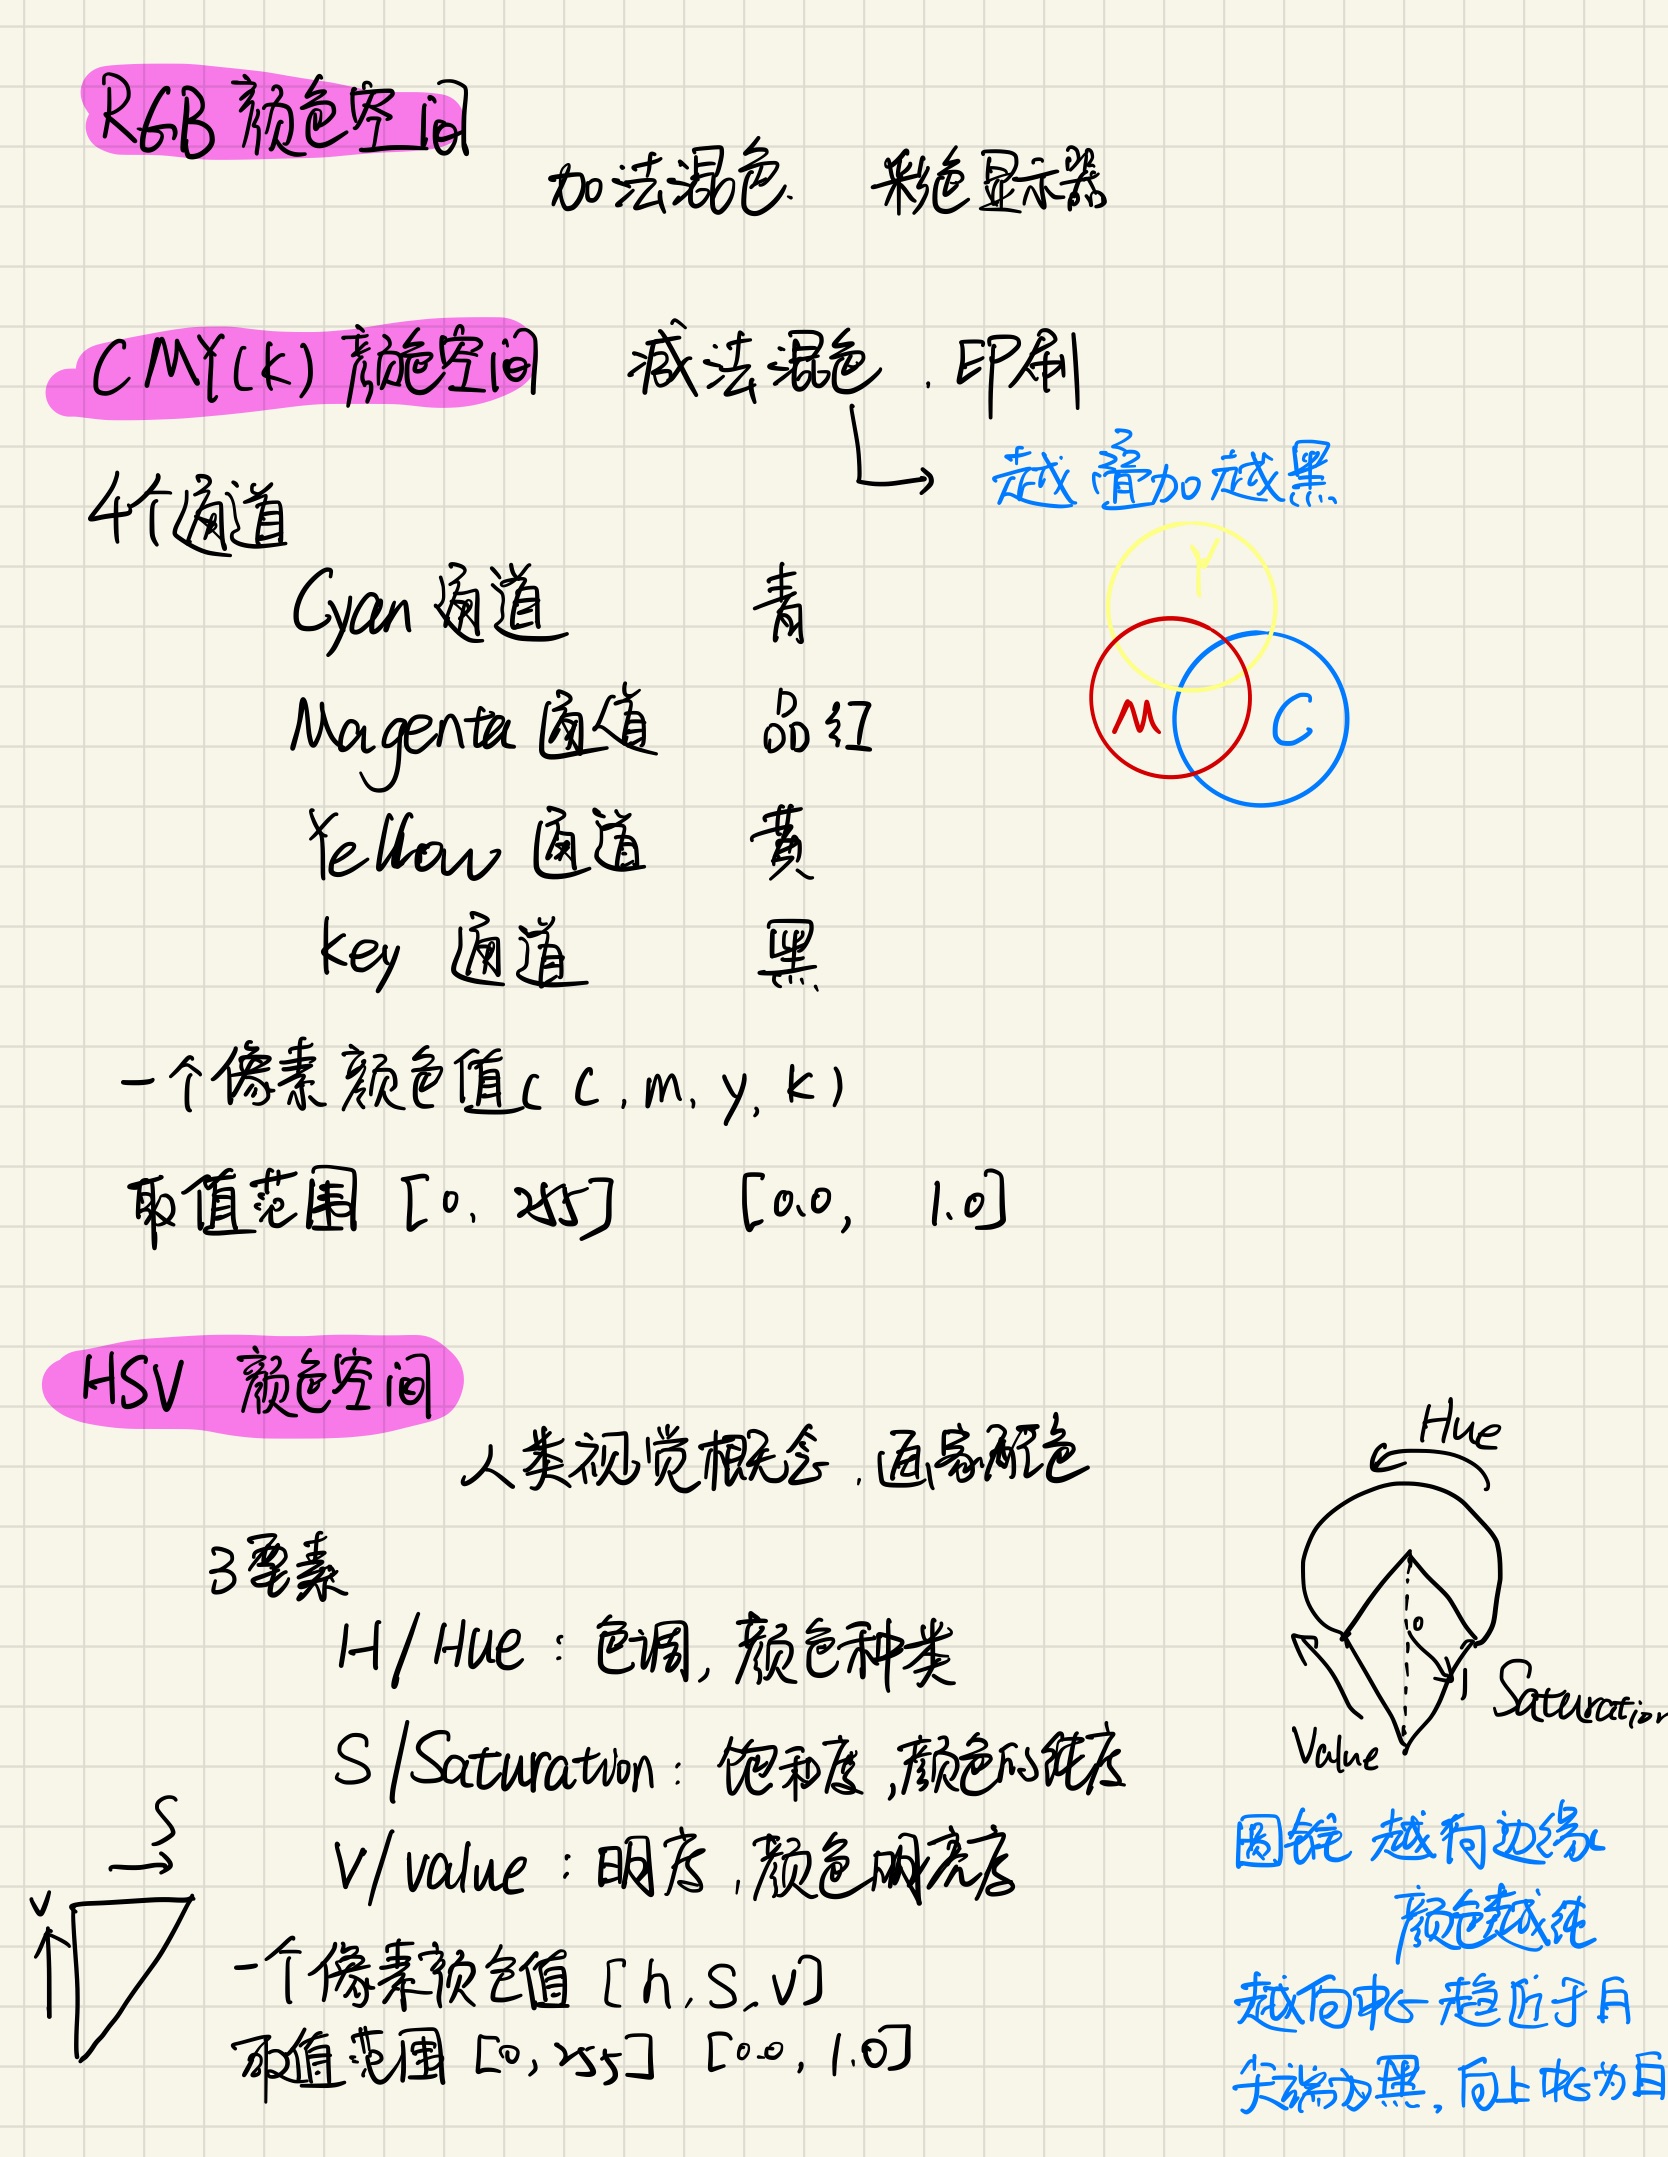 RGB 颜色空间
加法混色. 彩色显示器
CMY(k) 颜色空间 减法混色 . 印刷
越叠加越黑
4个通道
Y
M
C
Cyan 通道 青
Magenta 通道 品红
Yellow 通道 黄
key 通道 黑
一个像素颜色值( c, m, y, k)
取值范围 [0, 255] [0.0, 1.0]
HSV 颜色空间
人类视觉概念, 画家配色
3要素
H/Hue : 色调, 颜色种类
S/Saturation : 饱和度, 颜色的纯度
V/value : 明度, 颜色明亮度
一个像素颜色值 [h, S, V]
取值范围 [0, 255] [0.0, 1.0]
S
V
Hue
0
1
Saturation
Value
圆锥 越向边缘
颜色越纯
越向中心趋近于
尖端为黑, 向上中心为白